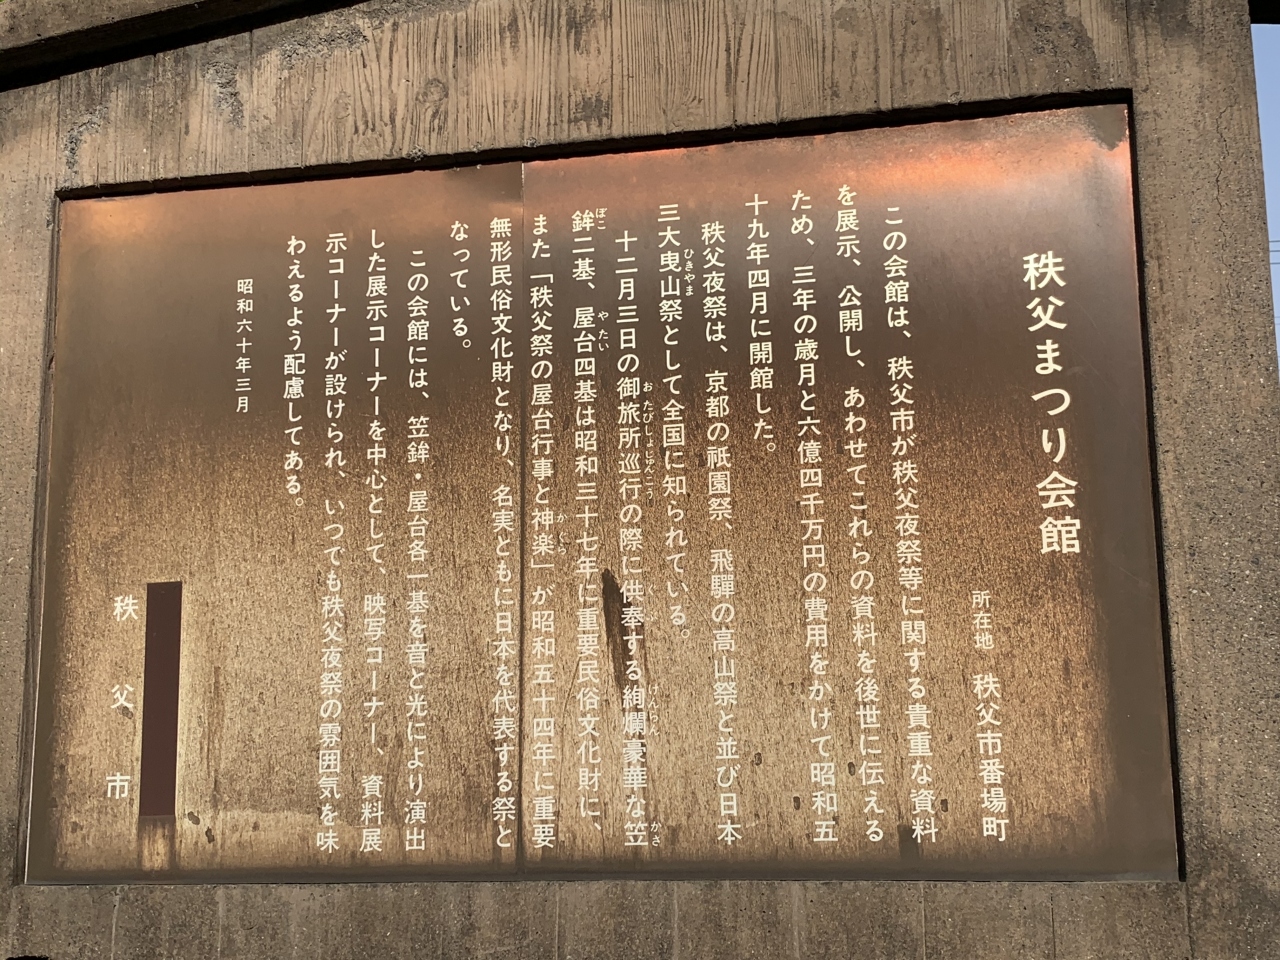 秩父まつり会館
所在地 秩父市番場町
この会館は、秩父市が秩父夜祭等に関する貴重な資料
を展示、公開し、あわせてこれらの資料を後世に伝える
ため、三年の歳月と六億四千万円の費用をかけて昭和五
十九年四月に開館した。
秩父夜祭は、京都の祇園祭、飛驒の高山祭と並び日本
三大曳山祭として全国に知られている。
十二月三日の御旅所巡行の際に供奉する絢爛豪華な笠
鉾二基、屋台四基は昭和三十七年に重要民俗文化財に、
また「秩父祭の屋台行事と神楽」が昭和五十四年に重要
無形民俗文化財となり、名実ともに日本を代表する祭と
なっている。
この会館には、笠鉾・屋台各一基を音と光により演出
した展示コーナーを中心として、映写コーナー、資料展
示コーナーが設けられ、いつでも秩父夜祭の雰囲気を味
わえるよう配慮してある。
昭和六十年三月
秩父市